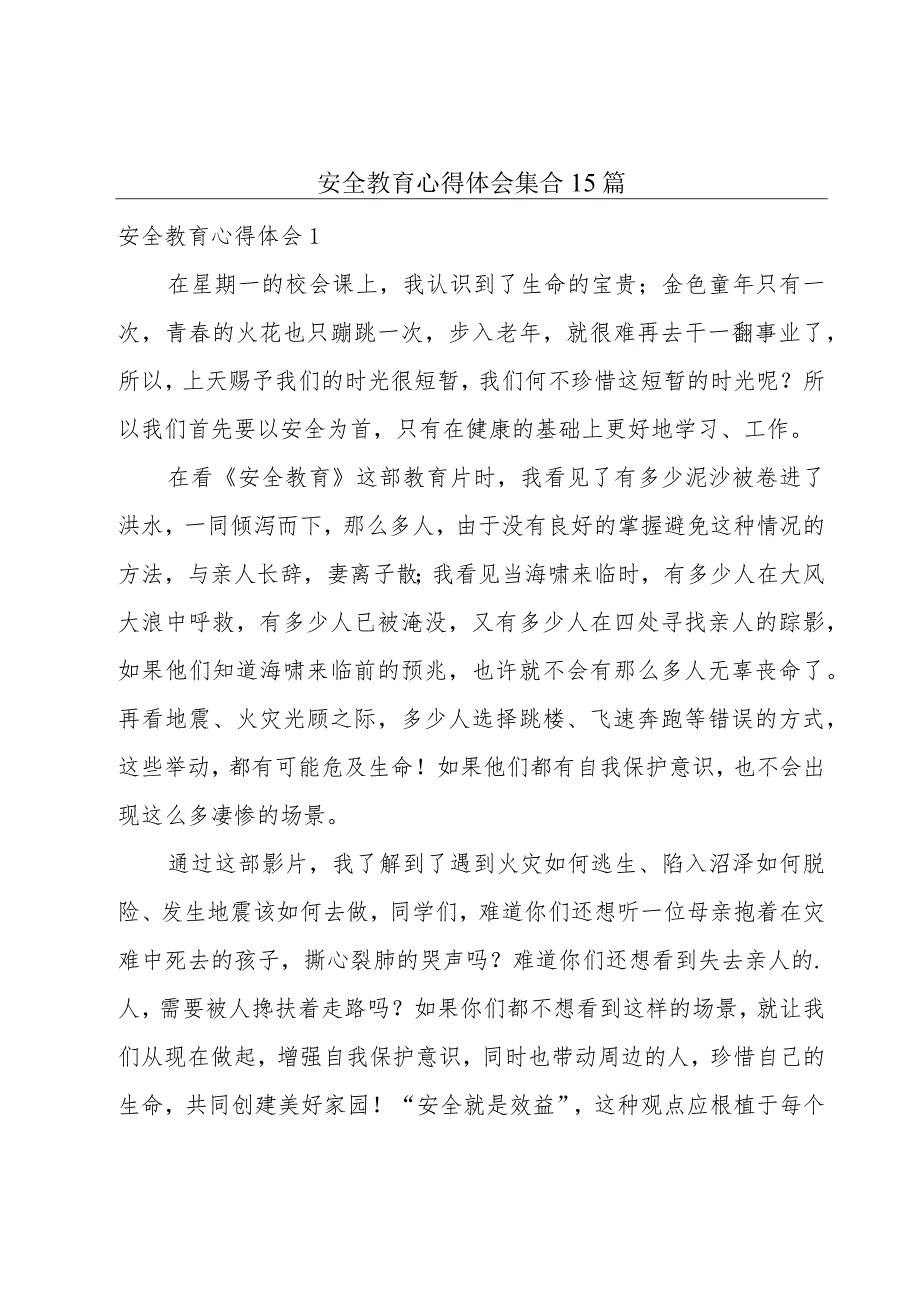 安全教育心得体会集合 15 篇
安全教育心得体会 1
在星期一的校会课上，我认识到了生命的宝贵；金色童年只有一
次，青春的火花也只蹦跳一次，步入老年，就很难再去干一翻事业了，
所以，上天赐予我们的时光很短暂，我们何不珍惜这短暂的时光呢？所
以我们首先要以安全为首，只有在健康的基础上更好地学习、工作。
在看《安全教育》这部教育片时，我看见了有多少泥沙被卷进了
洪水，一同倾泻而下，那么多人，由于没有良好的掌握避免这种情况的
方法，与亲人长辞，妻离子散；我看见当海啸来临时，有多少人在大风
大浪中呼救，有多少人已被淹没，又有多少人在四处寻找亲人的踪影，
如果他们知道海啸来临前的预兆，也许就不会有那么多人无辜丧命了。
再看地震、火灾光顾之际，多少人选择跳楼、飞速奔跑等错误的方式，
这些举动，都有可能危及生命！如果他们都有自我保护意识，也不会出
现这么多凄惨的场景。
通过这部影片，我了解到了遇到火灾如何逃生、陷入沼泽如何脱
险、发生地震该如何去做，同学们，难道你们还想听一位母亲抱着在灾
难中死去的孩子，撕心裂肺的哭声吗？难道你们还想看到失去亲人的.
人，需要被人搀扶着走路吗？如果你们都不想看到这样的场景，就让我
们从现在做起，增强自我保护意识，同时也带动周边的人，珍惜自己的
生命，共同创建美好家园！“安全就是效益”，这种观点应根植于每个